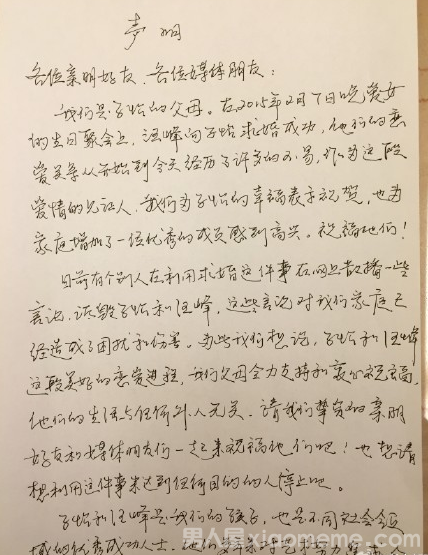 声明
各位亲朋好友、各位媒体朋友：
我们是子怡的父母。在2015年2月7日晚爱女
的生日聚会上，汪峰向子怡求婚成功，他们的恋
爱关系从开始到今天经历了许多的不易，作为这段
爱情的见证人，我们为子怡的幸福表示祝贺，也为
家庭增加了一位优秀的成员感到高兴。祝福他们！
目前有个别人在利用求婚这件事在网上散播一些
言论，诋毁子怡和汪峰，这些言论对我们家庭已
经造成了困扰和伤害。为此我们想说，子怡和汪峰
这段美好的恋爱进程，我们父母全力支持和衷心祝福，
他们的生活与任何外人无关。请我们挚爱的亲朋
好友和媒体朋友们一起来祝福他们吧！也想请
想利用这件事来达到任何目的的人停止吧。
子怡和汪峰是我们的孩子，也是不同社会领
域的优秀成功人士，他们
男人屋 xiaomeme.com